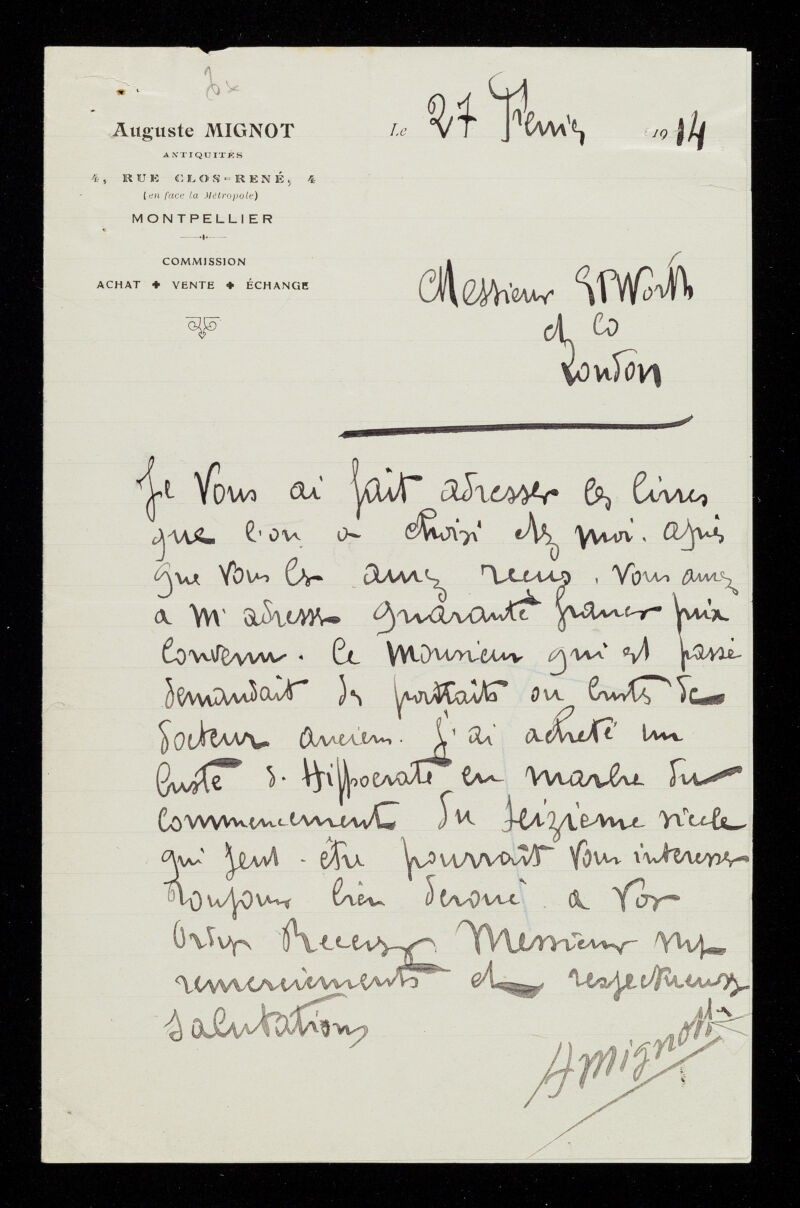 Auguste MIGNOT
ANTIQUITÉS
4, RUE CLOS-RENÉ, 4
(en face la Métropole)
MONTPELLIER
COMMISSION
ACHAT ✦ VENTE ✦ ÉCHANGE
Le 27 Fevrier 1914
Messieur Worth
et Co
London
Je Vous ai fait adresser les livres
que l'on a choisi chez moi. après
que Vous les aurez recus. Vous aurez
a M' adresser quarante francs prix
Convenu. Ce Monsieur qui est passé
demandait des portraits ou bustes de
docteur anciens. J'ai acheté un
buste d. Hippocrate en marbre du
commencement du seizième siècle
qui peut-être pourrait Vous interesser
Toujours bien devoué a Vos
Ordres Recevez Messieur mes
remerciements et respectueuses
Salutations
A Mignot